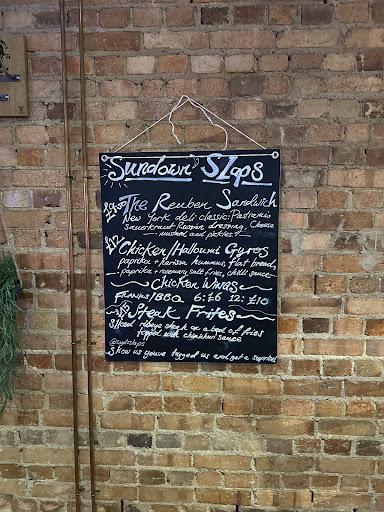 Sundown Slaps
The Reuben Sandwich
New York deli classic: Pastrami
Sauerkraut Russian dressing, cheese
mustard and pickles
Chicken/Halloumi Gyros
paprika + harissa hummus, flat bread,
paprika + rosemary salt fries, chilli sauce
Chicken Wings
Franks/BBQ 6: £6 12: £10
Steak Frites
Sliced steak on a bed of fries
topped with chimichurri sauce
Show us you've tagged us and get a surprise!